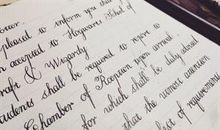 pleased to inform you that
accepted to Hogwarts School of
craft & Wizardry
Students shall be required to report to
Chamber of Reception upon arrival,
for which shall be duly
that the
list of requirements